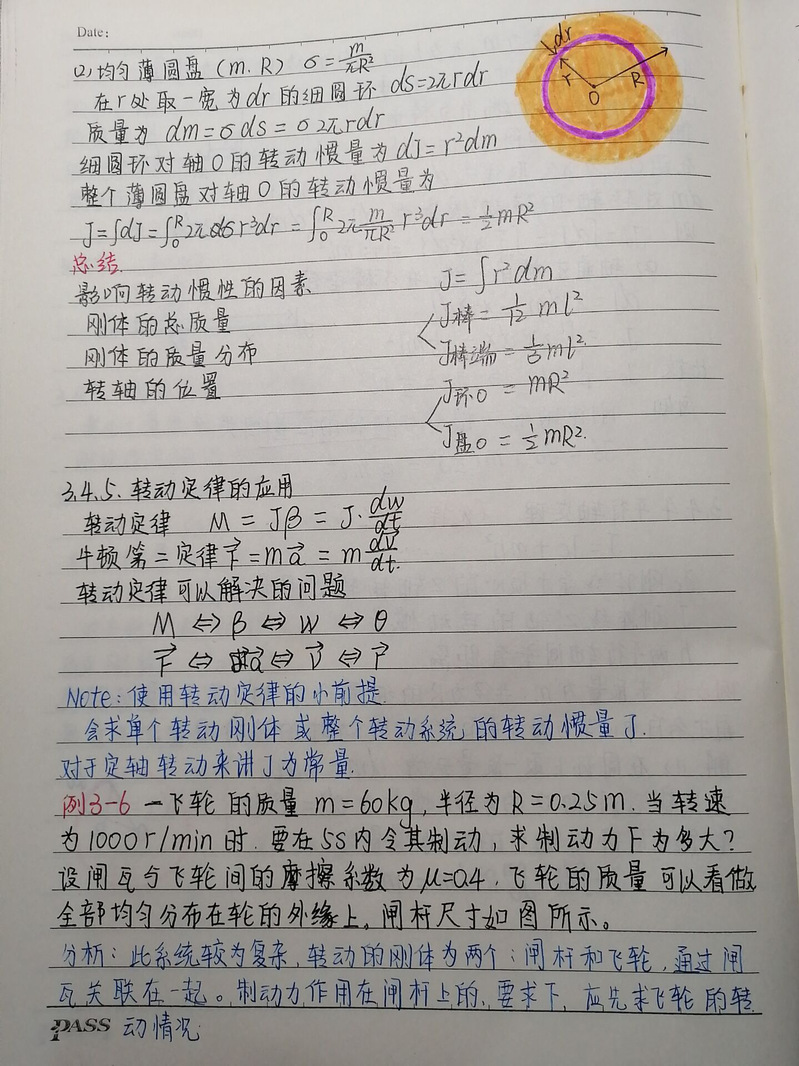 Date:
(2) 均匀薄圆盘 (m.R) σ = m/πR²
在r处取一宽为dr的细圆环 ds=2πrdr
dr
r
R
O
质量为 dm=σds=σ2πrdr
细圆环对轴O的转动惯量为dJ=r²dm
整个薄圆盘对轴O的转动惯量为
J=∫dJ=∫₀ᴿ2πσr³dr = ∫₀ᴿ2π m/πR² r³dr = ½mR²
总结.
影响转动惯性的因素
刚体的总质量
刚体的质量分布
转轴的位置
J=∫r²dm
J棒 = 1/12 ml²
J棒端 = 1/3 ml².
J环O = mR²
J盘O = ½mR².
3.4.5. 转动定律的应用
转动定律 M = Jβ = J·dw/dt
牛顿第二定律 F⃗ = ma⃗ = m dv⃗/dt.
转动定律可以解决的问题
M ⇔ β ⇔ w ⇔ θ
F⃗ ⇔ a⃗ ⇔ v⃗ ⇔ r⃗
Note: 使用转动定律的小前提.
会求单个转动刚体或整个转动系统的转动惯量J.
对于定轴转动来讲J为常量.
例3-6 一飞轮的质量 m=60kg, 半径为R=0.25m. 当转速
为1000r/min时. 要在5S内令其制动, 求制动力F为多大?
设闸瓦与飞轮间的摩擦系数为μ=0.4. 飞轮的质量可以看做
全部均匀分布在轮的外缘上。闸杆尺寸如图所示。
分析: 此系统较为复杂, 转动的刚体为两个: 闸杆和飞轮, 通过闸
瓦关联在一起。制动力作用在闸杆上的, 要求F, 应先求飞轮的转
PASS 动情况